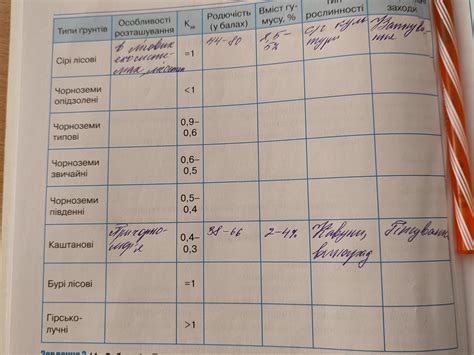 Типи ґрунтів
Особливості
розташування
Kзв
Родючість
(у балах)
Вміст гу-
мусу, %
Тип
рослинності
заходи
Сірі лісові
В лісових
=1
44-80
с/г куль
тури
Вапнува-
ння
Чорноземи
опідзолені
<1
Чорноземи
типові
0,9–
0,6
Чорноземи
звичайні
0,6–
0,5
Чорноземи
південні
0,5–
0,4
Каштанові
Причорно-
мор'я
0,4–
0,3
38-66
2-4%
Кавуни,
виноград
Гіпсування
Бурі лісові
=1
Гірсько-
лучні
>1